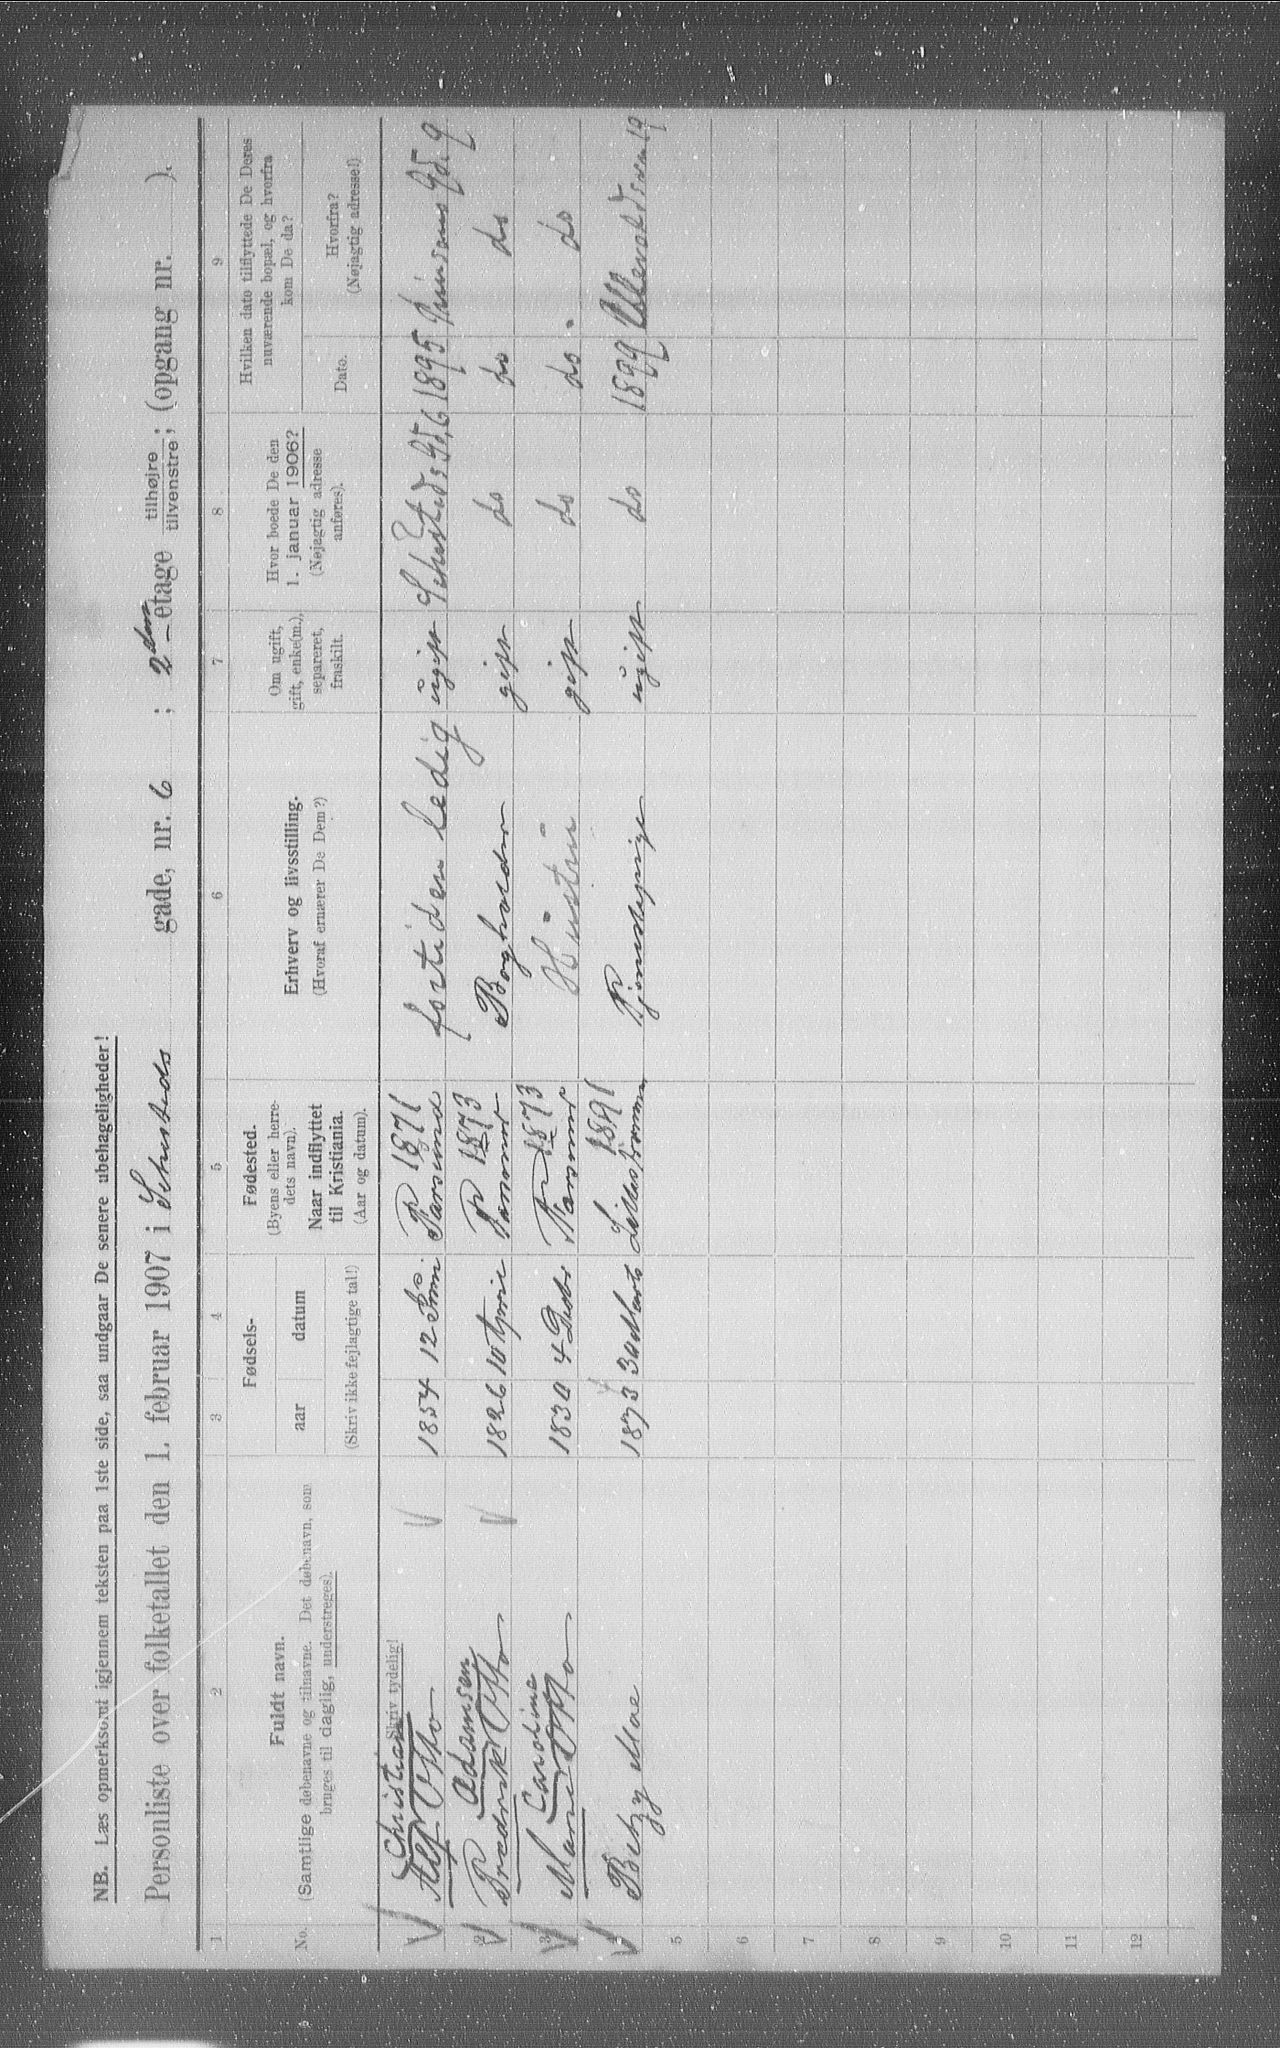 NB. Læs opmerksomt igjennem teksten paa 1ste side, saa undgaar De senere ubehageligheder!
Personliste over folketallet den 1. februar 1907 i Schusteds gade, nr. 6 ; 2den etage tilhøjre tilvenstre ; (opgang nr. ).
1 2 3 4 5 6 7 8 9
No.
Fuldt navn.
(Samtlige døbenavne og tilnavne. Det døbenavn, som
bruges til daglig, understreges).
Skriv tydelig!
Fødsels-
aar datum
(Skriv ikke fejlagtige tal!)
Fødested.
(Byens eller herre-
dets navn).
Naar indflyttet
til Kristiania.
(Aar og datum).
Erhverv og livsstilling.
(Hvoraf ernærer De Dem?)
Om ugift,
gift, enke(m.),
separeret,
fraskilt.
Hvor boede De den
1. januar 1906?
(Nøjagtig adresse
anføres).
Hvilken dato tilflyttede De Deres
nuværende bopæl, og hvorfra
kom De da?
Dato.
Hvorfra?
(Nøjagtig adresse!)
Christian 1871
Alf Otto 1854 12 Juni fortiden ledig ugift Schusteds Gd. 6 1895 Gd. 9
Adamsen 1873
2 Fredrik Otto 1826 10 April Bogholder gift do do do
Carolina 1873
3 Marie Otto 1830 4 Decbr Hustru gift do do. do
1891
4 Betzy Moe 1873 30 Marts Lillestrømmen Tjenestepige ugift do 1899 Ullevoldsven 19
5
6
7
8
9
10
11
12